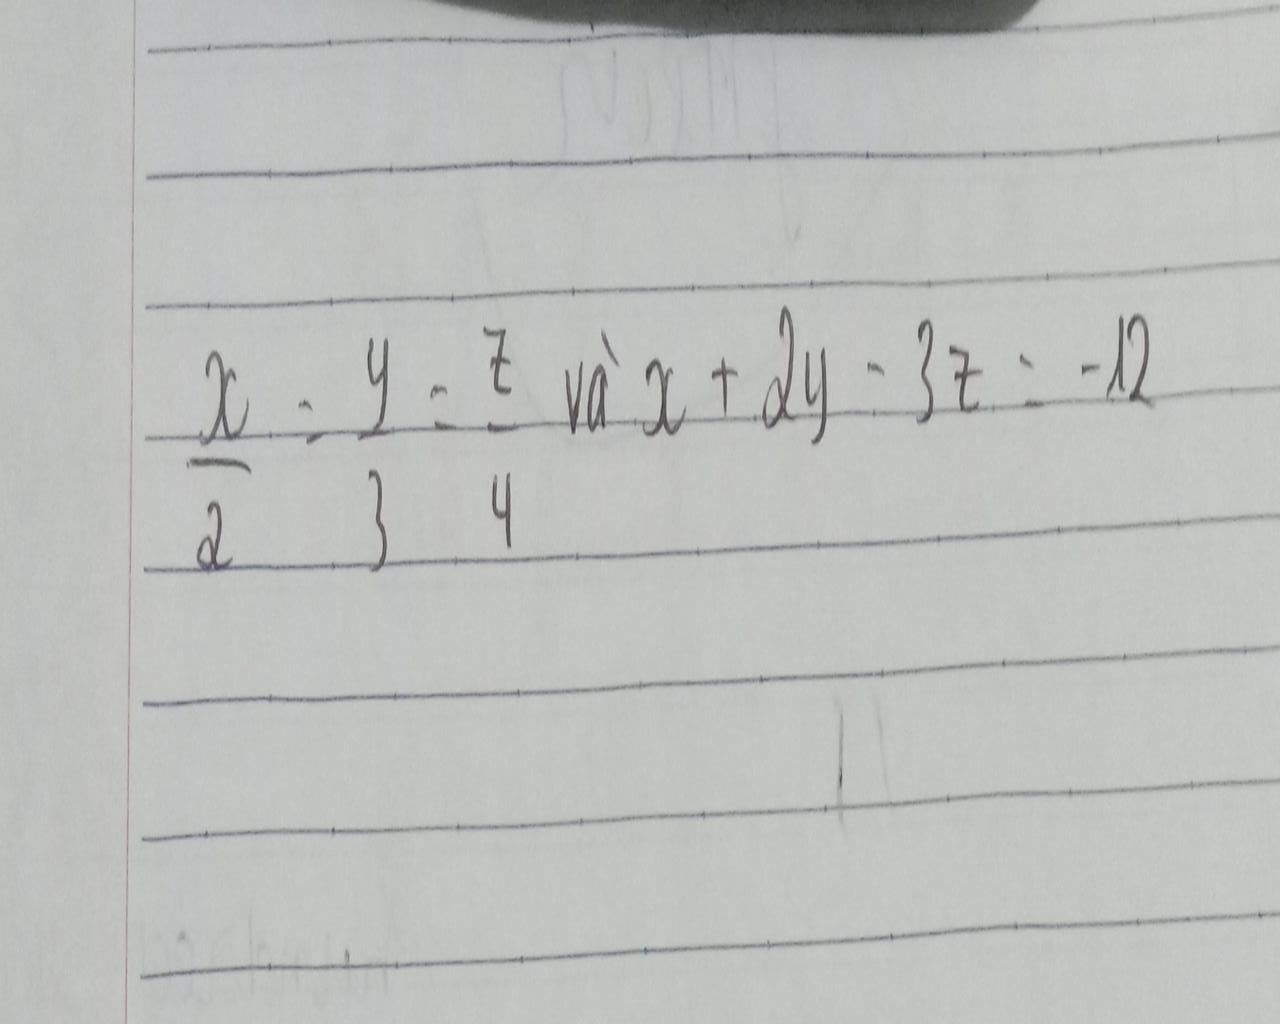 x/2 = y/3 = z/4 và x + 2y - 3z = -12